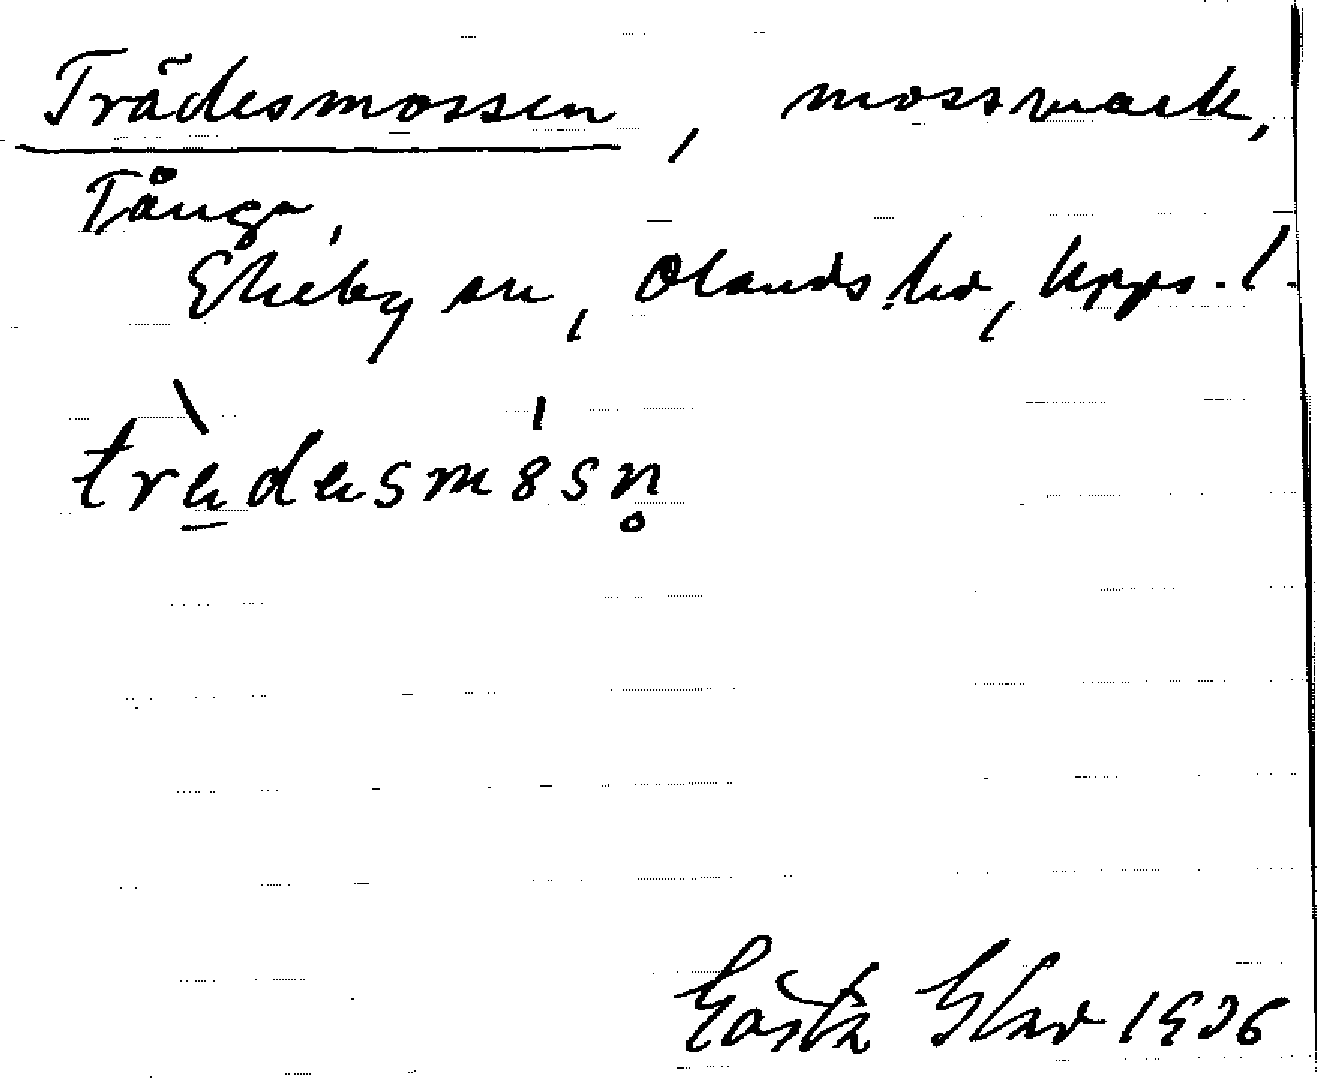 Trädesmossen, mossmark,
Tånga,
Ekeby sn, Olands hd, Upps. l.
Gösta Glav 1936